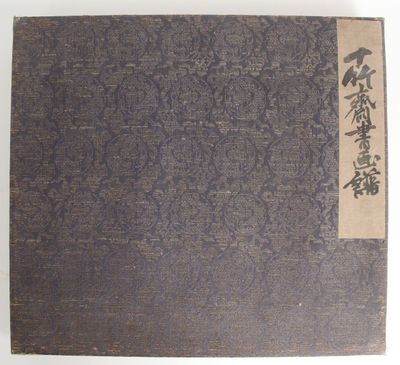 十竹齋書画譜